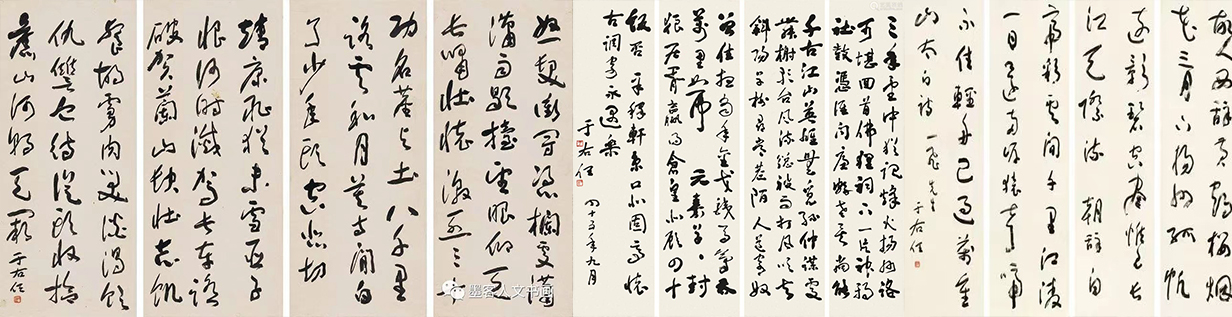 故人西辭黃鶴樓煙
花三月下揚州孤帆
遠影碧空盡惟見長
江天際流 朝辭白
帝彩雲間千里江陵
一日還兩岸猿聲啼
不住輕舟已過萬重
山 太白詩 一飛先生
于右任
千古江山英雄無覓孫仲謀處
舞榭歌臺風流總被雨打風吹去
斜陽草樹尋常巷陌人道寄奴
曾住想當年金戈鐵馬氣吞
萬里如虎 元嘉草草封
狼居胥贏得倉皇北顧四十
三年望中猶記烽火揚州路
可堪回首佛貍祠下一片神鴉
社鼓憑誰問廉頗老矣尚能
飯否 辛稼軒京口北固亭懷
古調寄永遇樂
于右任 四十五年九月
怒髮衝冠憑欄處瀟
瀟雨歇擡望眼仰天
長嘯壯懷激烈三十
功名塵與土八千里
路雲和月莫等閒白
了少年頭空悲切
靖康恥猶未雪臣子
恨何時滅駕長車踏
破賀蘭山缺壯志飢
餐胡虜肉笑談渴飲
仇讎血待從頭收拾
舊山河朝天闕 于右任
墨客人文书画